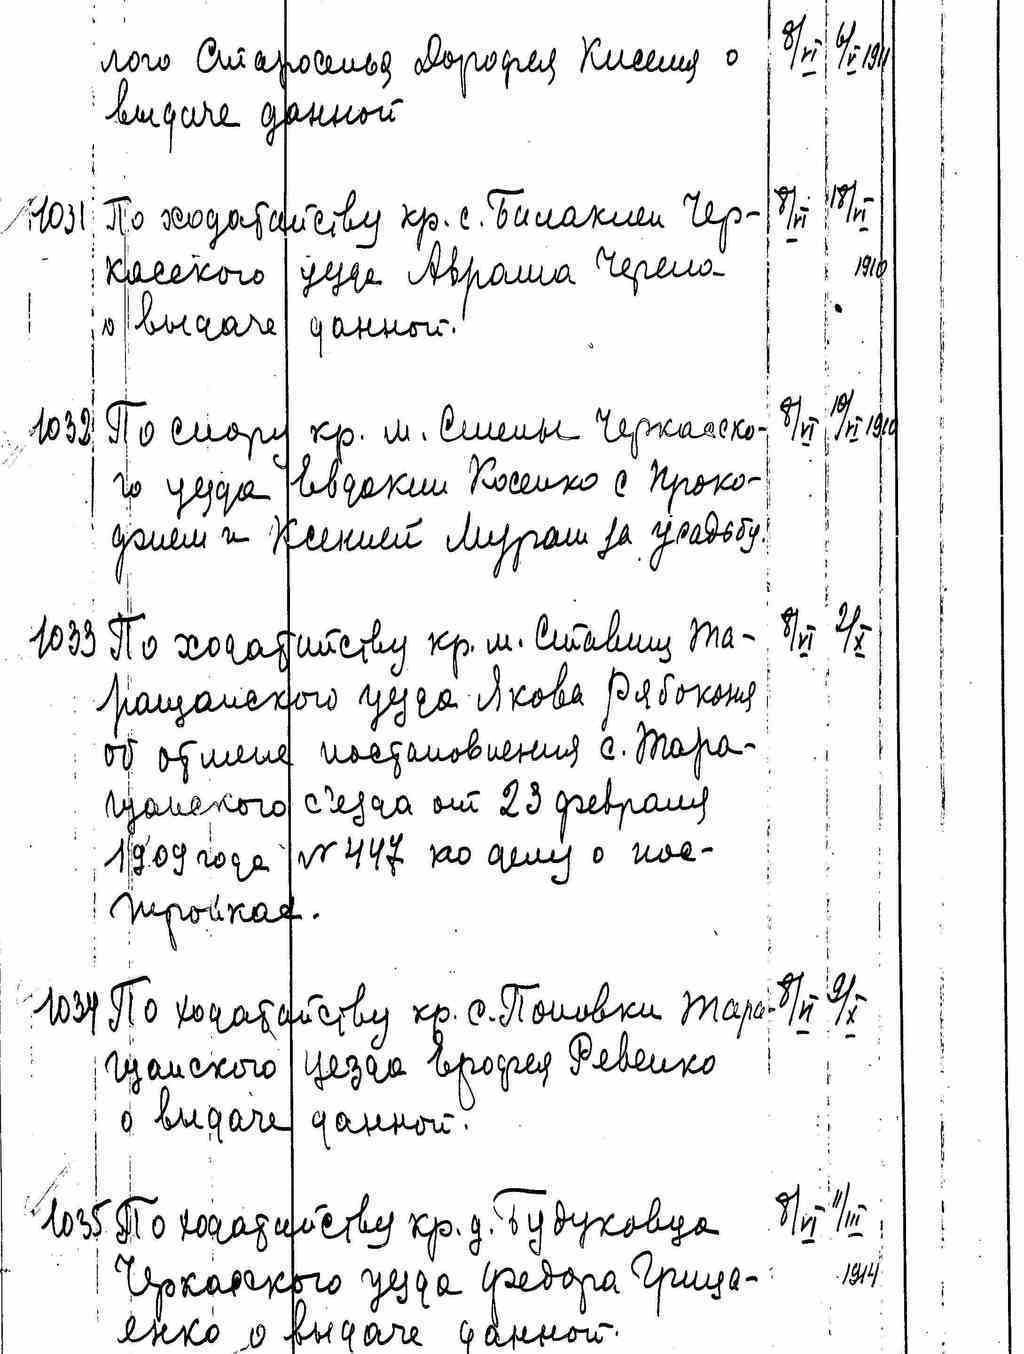 лого Староселья Дорофея Киселя о 8/VI 6/V 1911
выдаче данной
1031 По ходатайству кр. с. Билаклеи Чер- 8/VI 18/VI
касского уезда Аврама Черепа 1910
о выдаче данной.
1032 По спору кр. м. Смелы Черкасско- 8/VI 10/VI 1910
го уезда Евдокии Косенко с Проко-
фием и Ксенией Мураш за усадьбу.
1033 По ходатайству кр. м. Ставищ Та- 8/VI 2/X
ращанского уезда Якова Рябоконя
об отмене постановления с. Тара-
щанского с'езда от 23 февраля
1909 года № 447 по делу о пос-
тройках.
1034 По ходатайству кр. с. Поповки Тара- 8/VI 9/X
щанского уезда Ерофея Ревенко
о выдаче данной.
1035 По ходатайству кр. д. Будуковца 8/VI 11/III
Черкасского уезда Федора Грица- 1914
енко о выдаче данной.